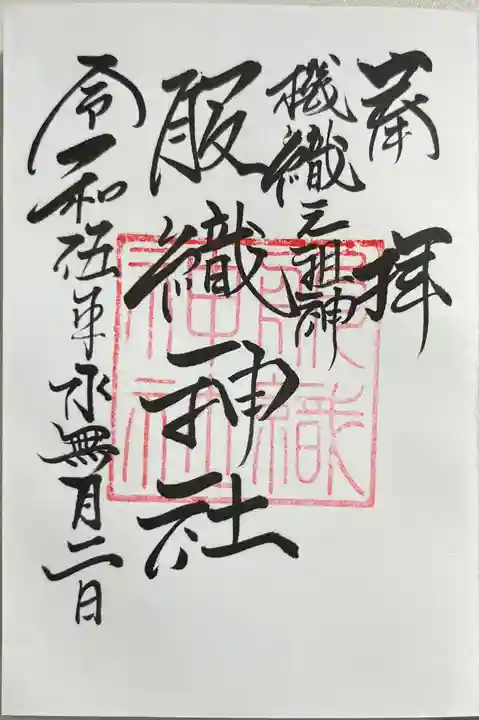 奉拝
機織元祖神
服織神社
令和伍年水無月二日
服織
神社